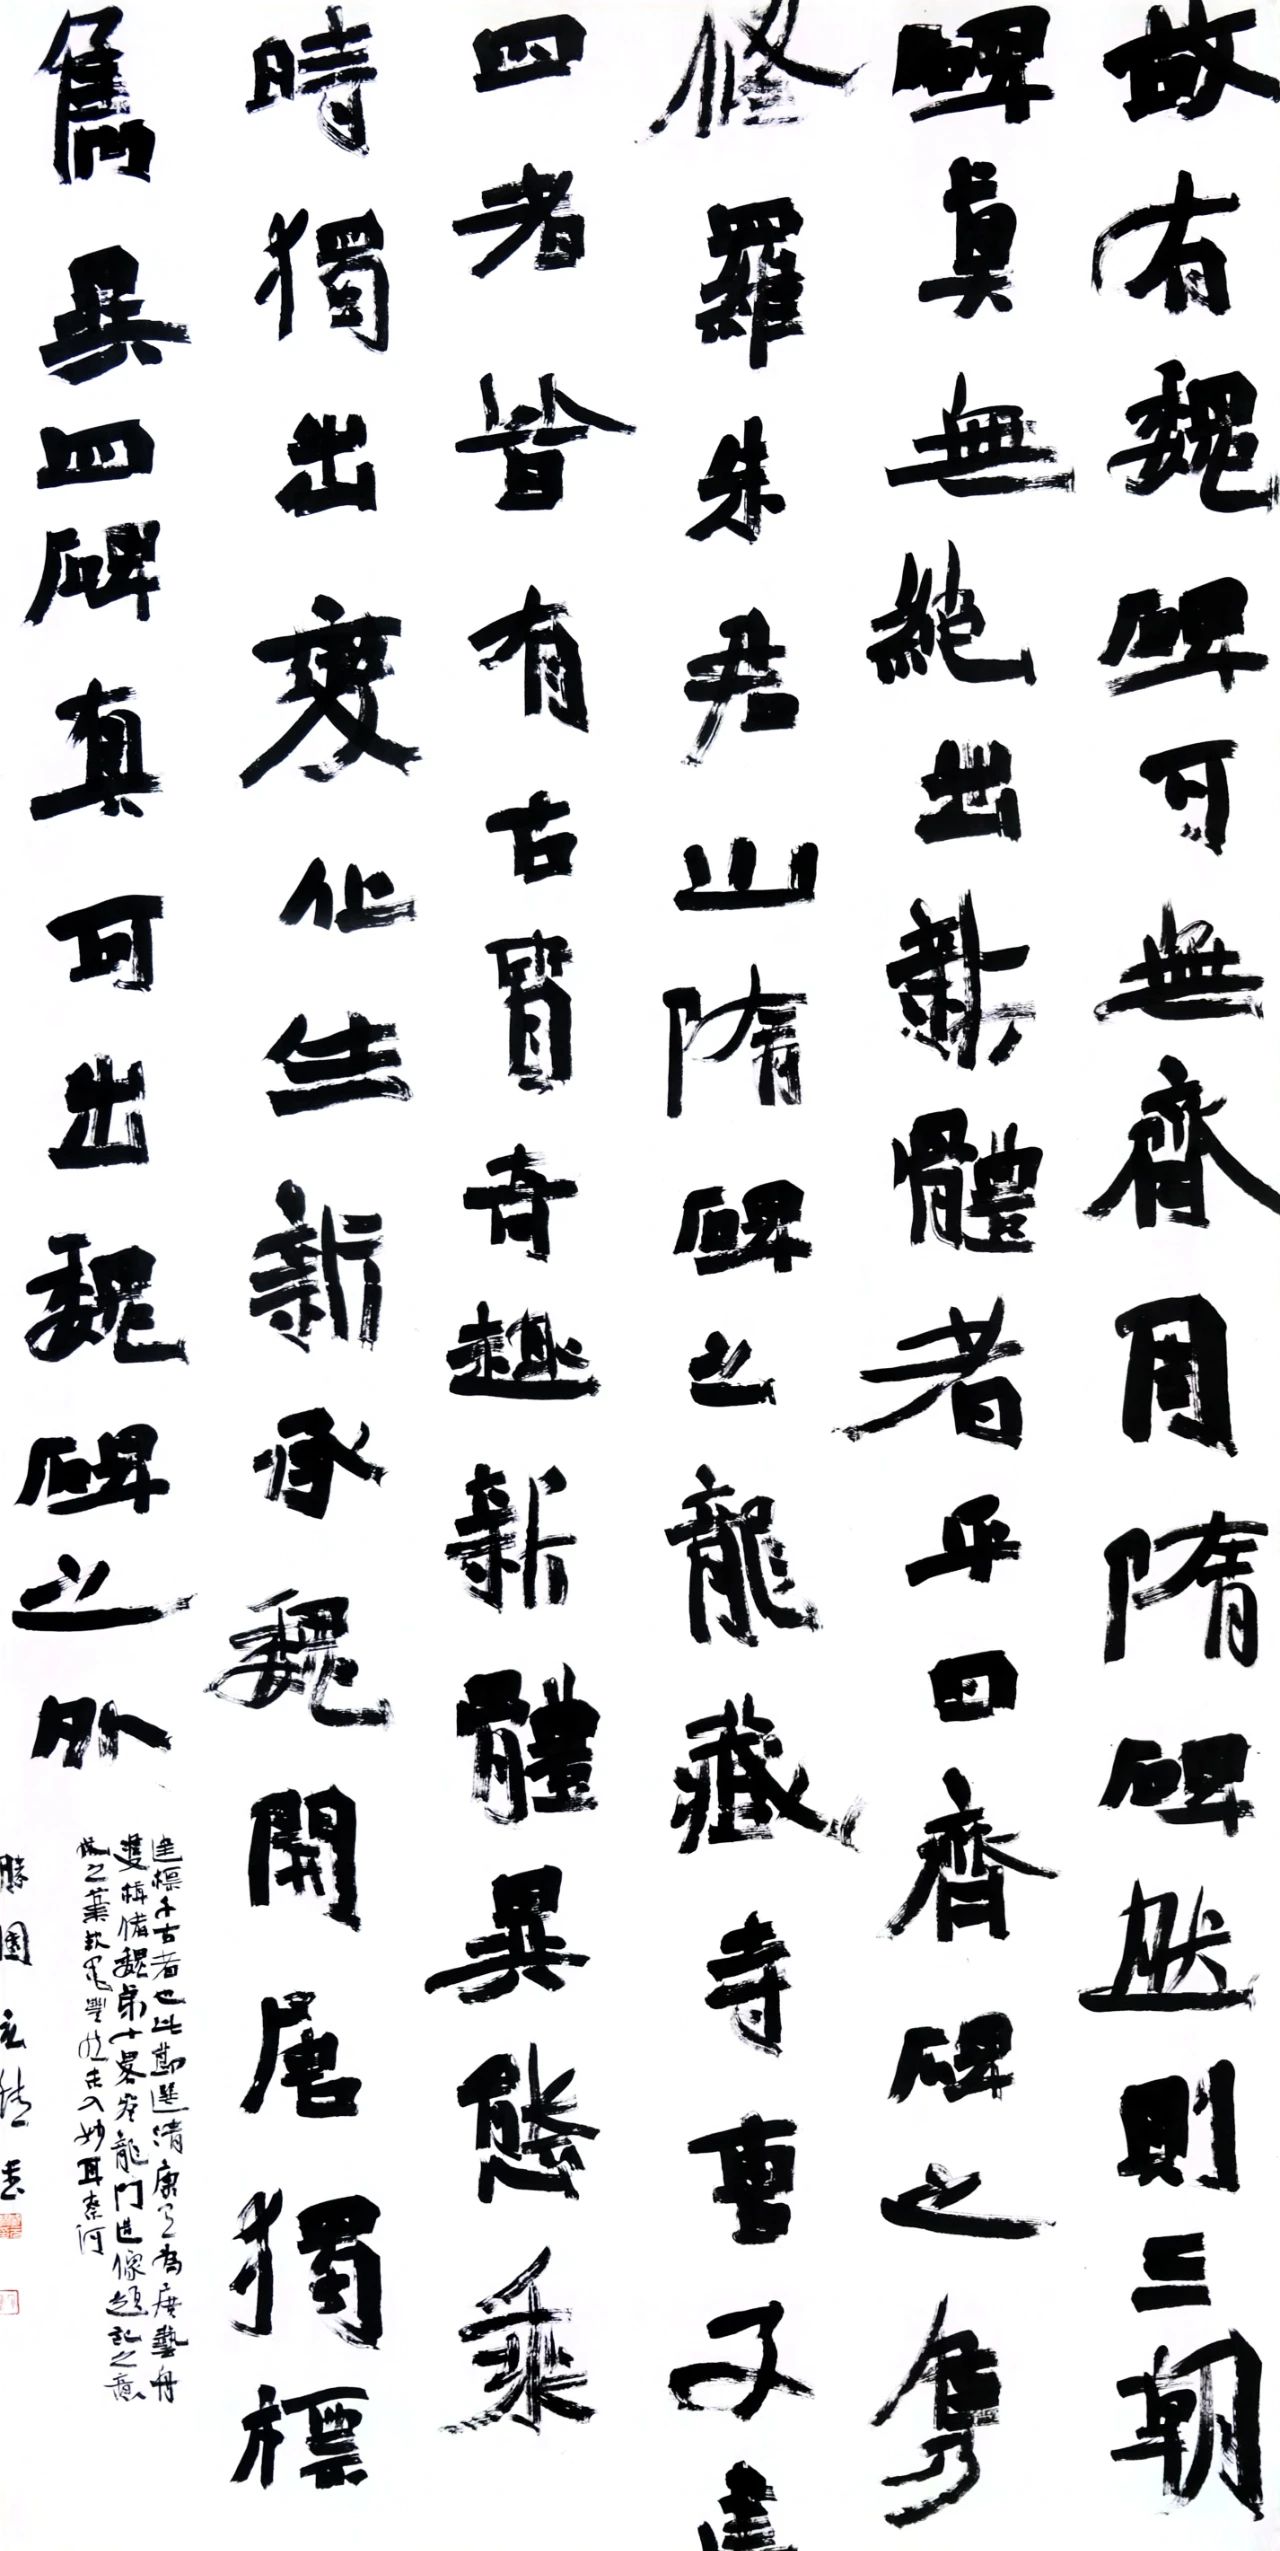 故有魏碑可無齊周隋碑然則三朝
碑真無絕出新體者乎曰齊碑之隽
修羅朱君山隋碑之龍藏寺曹子建
四者皆有古質奇趣新體異態乘
時獨出變化生新承魏開唐獨標
雋異四碑真可出魏碑之外
建標千古者也此節選清康有為廣藝舟
雙楫備魏第十略參龍門造像題記之意
入妙耳